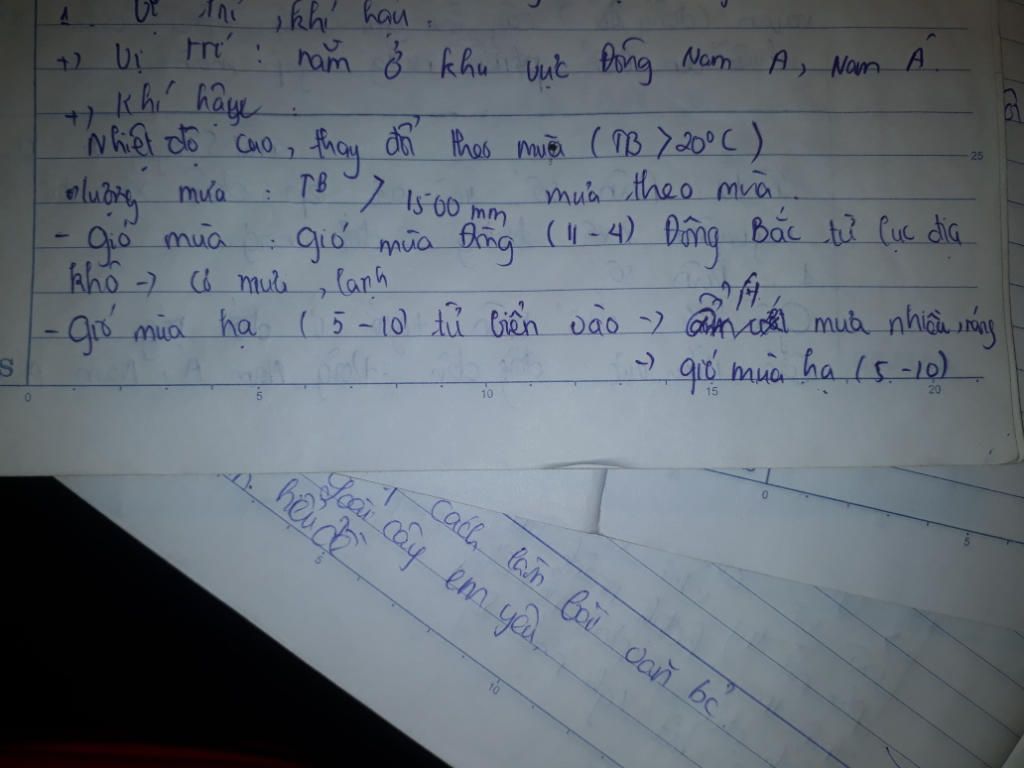 1. Vị trí, khí hậu:
+) Vị trí: nằm ở khu vực Đông Nam Á, Nam Á
+) Khí hậu:
Nhiệt độ cao, thay đổi theo mùa (TB > 20°C)
lượng mưa: TB > 1500 mm mưa theo mùa.
- Gió mùa: gió mùa Đông (11-4) Đông Bắc từ lục địa
khô -> có mưa, lạnh
- Gió mùa hạ (5-10) từ biển vào -> mưa nhiều, nóng
-> gió mùa hạ (5-10)
S
0 5 10 15 20
25
1 cách làm bài văn bc
Loài cây em yêu
0
5
5
10